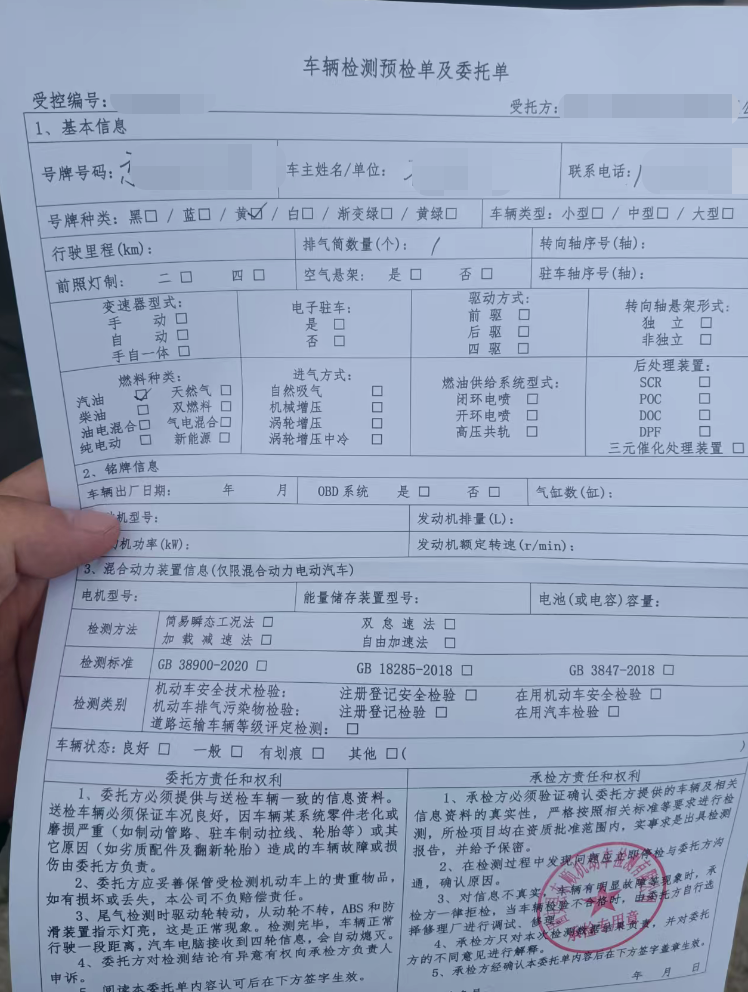 车辆检测预检单及委托单
受控编号:
受托方:
1、基本信息
号牌号码: 车主姓名/单位: 联系电话:
号牌种类: 黑□ / 蓝□ / 黄☑ / 白□ / 渐变绿□ / 黄绿□ 车辆类型: 小型□ / 中型□ / 大型□
行驶里程(km): 排气筒数量(个): / 转向轴序号(轴):
前照灯制: 二 □ 四 □ 空气悬架: 是 □ 否 □ 驻车轴序号(轴):
变速器型式:
手 动 □
自 动 □
手自一体 □
电子驻车:
是 □
否 □
驱动方式:
前 驱 □
后 驱 □
四 驱 □
转向轴悬架形式:
独 立 □
非独立 □
燃料种类:
汽油 ☑ 天然气 □
柴油 □ 双燃料 □
油电混合□ 气电混合□
纯电动 □ 新能源 □
进气方式:
自然吸气 □
机械增压 □
涡轮增压 □
涡轮增压中冷 □
燃油供给系统型式:
闭环电喷 □
开环电喷 □
高压共轨 □
后处理装置:
SCR □
POC □
DOC □
DPF □
三元催化处理装置 □
2、铭牌信息
车辆出厂日期: 年 月 OBD系统 是 □ 否 □ 气缸数(缸):
机型号: 发动机排量(L):
机功率(kW): 发动机额定转速(r/min):
3、混合动力装置信息(仅限混合动力电动汽车)
电机型号: 能量储存装置型号: 电池(或电容)容量:
检测方法
简易瞬态工况法 □ 双怠速法 □
加载减速法 □ 自由加速法 □
检测标准 GB 38900-2020 □ GB 18285-2018 □ GB 3847-2018 □
检测类别
机动车安全技术检验: 注册登记安全检验 □ 在用机动车安全检验 □
机动车排气污染物检验: 注册登记检验 □ 在用汽车检验 □
道路运输车辆等级评定检测: □
车辆状态: 良好 □ 一般 □ 有划痕 □ 其他 □( )
委托方责任和权利
1、委托方必须提供与送检车辆一致的信息资料。
送检车辆必须保证车况良好，因车辆某系统零件老化或
磨损严重（如制动管路、驻车制动拉线、轮胎等）或其
它原因（如劣质配件及翻新轮胎）造成的车辆故障或损
伤由委托方负责。
2、委托方应妥善保管受检测机动车上的贵重物品，
如有损坏或丢失，本公司不负赔偿责任。
3、尾气检测时驱动轮转动，从动轮不转，ABS和防
滑装置指示灯亮，这是正常现象。检测完毕，车辆正常
行驶一段距离，汽车电脑接收到四轮信息，会自动熄灭。
4、委托方对检测结论有异意有权向承检方负责人
申诉。
5、阅读本委托单内容认可后在下方签字生效。
承检方责任和权利
1、承检方必须验证确认委托方提供的车辆及相关
信息资料的真实性，严格按照相关标准等要求进行检
测，所检项目均在资质批准范围内，实事求是出具检测
报告，并给予保密。
2、在检测过程中发现问题应立即停检与委托方沟
通，确认原因。
3、对信息不真实，车辆有明显故障等现象时，承
检方一律拒检，当车辆检验不合格时，由委托方自行选
择修理厂进行调试、修理。
4、承检方只对本次检测数据结果负责，并对委托
方的不同意见进行解释。
5、承检方经确认本委托单内容后在下方签字盖章生效。
年 月 日